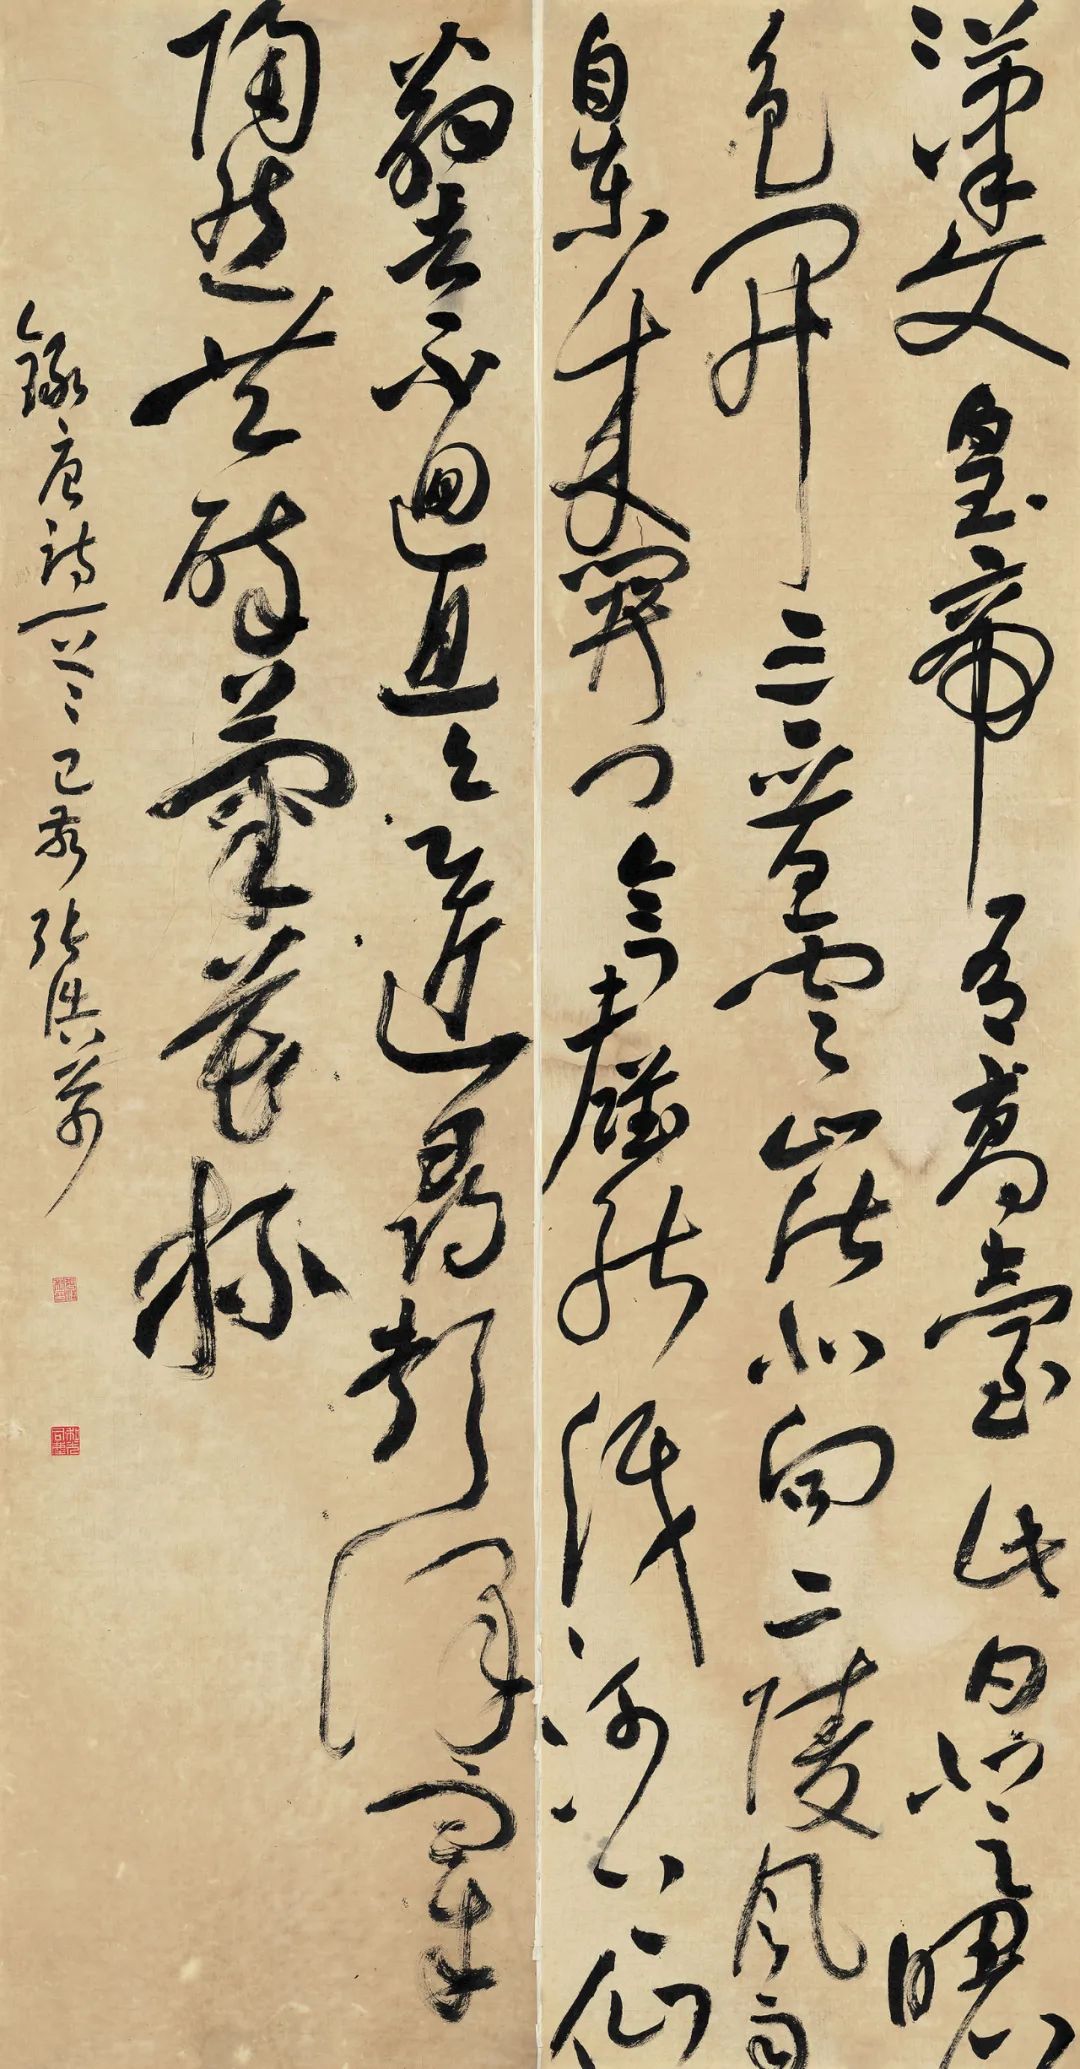 漢文皇帝有高臺此日登臨曙
色開三晉雲山皆北向二陵風雨
自東來關門令尹誰能識河上仙
翁去不迴且欲近尋彭澤宰
陶然共醉菊花杯
錄唐詩一首